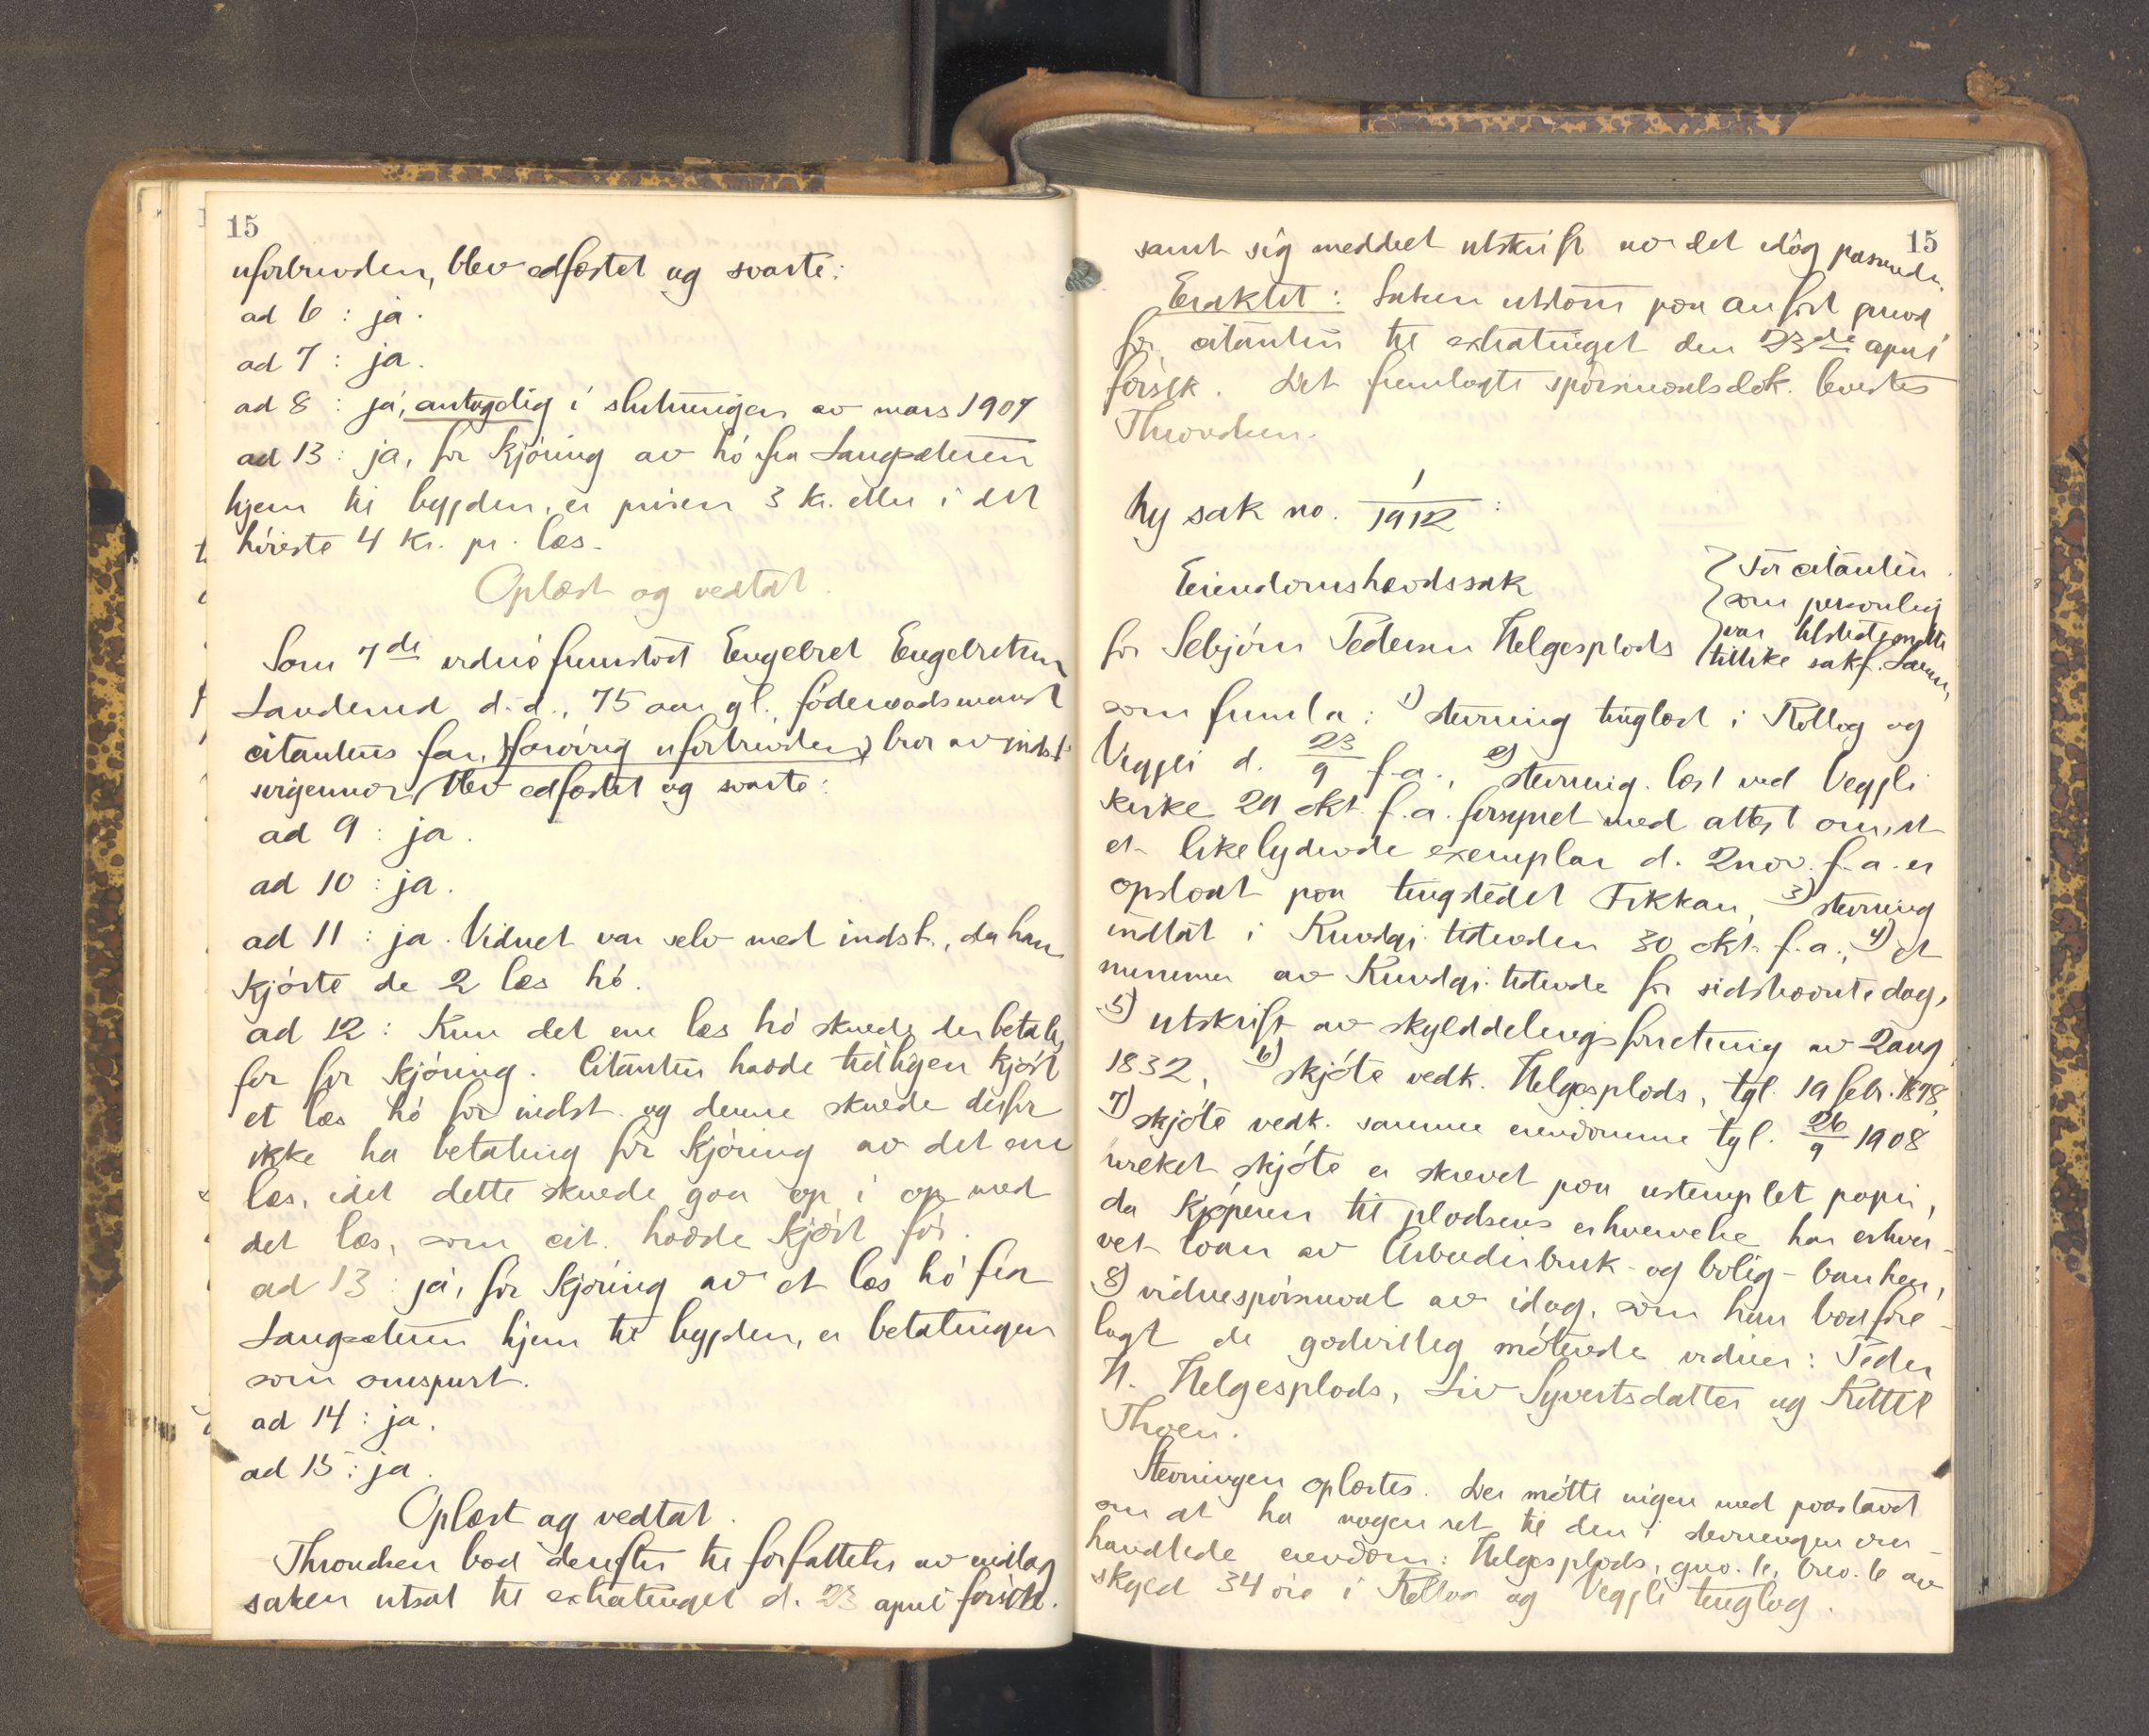 15
uforbunden, blev edfæstet og svarte:
ad 6 : ja.
ad 7 : ja.
ad 8 : ja, antagelig i slutningen av mars 1907
ad 13 : ja, for kjöring av hö fra Langsæteren
hjem til bygden, er prisen 3 kr. eller i det
höieste 4 kr. pr. læs.
Oplæst og vedtat.
Som 7de vidne fremstod Engebret Engebretsen
Landerud d. d., 75 aar gl., föderaadsmand
citantens far, forövrig uforbunden, bror av indst.
svigermor, blev edfæstet og svarte:
ad 9 : ja.
ad 10 : ja.
ad 11 : ja. Vidnet var selv med indst., da han
kjörte de 2 læs hö.
ad 12 : Kun det ene læs hö skulde der betales
for for kjöring. Citanten hadde tidligen kjört
et læs hö for indst. og denne skulde derfor
ikke ha betaling for kjöring av det ene
læs, idet dette skulde gaa op i op med
det læs, som cit. hadde kjört för.
ad 13 : ja, for kjöring av et læs hö fra
Langsæteren hjem til bygden, er betalingen
som omspurt.
ad 14 : ja.
ad 15 : ja.
Oplæst og vedtat.
Throndsen bad derefter til forfattelse av indlæg
saken utsat til extratinget d. 23 april förstk.
15
samt sig meddelt utskrift av det idag passerede.
Eraktet : Saken utstaar paa anfört grund
for citanten til extratinget den 23de april
förstk. Det fremlagte spörsmaalsdok. leveres
Throndsen.
Ny sak no. 1/1912 :
Eiendomshævdssak
for Sebjörn Pedersen Helgesplads
For citanten
som personlig
var tilstede mötte
tillike sakf.
som fremla: 1) stevning tinglæst i Rollag og
Veggli d. 23/9 f. a., 2) stevning læst ved Veggli
kirke 29 okt. f. a. forsynet med attest om, at
et likelydende exemplar d. 2 nov. f. a. er
opslaat paa tingstedet Fikkan, 3) stevning
indtat i Kundgj. tidenden 30 okt. f. a., 4) et
nummer av Kundgj. tidende for sidstnævnte dag,
5) utskrift av skylddelingsforretning av 2 aug.
1832, 6) skjöte vedk. Helgesplads, tgl. 19 febr. 1878,
7) skjöte vedk. samme eiendomme tgl. 26/9 1908
hvilket skjöte er skrevet paa ustemplet papir,
da kjöperen til pladsens erhvervelse har erhver-
vet laan av Arbeiderbruk- og bolig-banken,
8) vidnespörsmaal av idag, som han bad fore-
lagt de godvillig mötende vidner: Peder
H. Helgesplads, Liv Syvertsdatter og Kittil
Thoen.
Stevningen oplæstes. Der mötte ingen med paastand
om at ha nogen ret til den i stevningen om-
handlede eiendom: Helgesplads, gno. 16, brno. 6 av
skyld 34 öre i Rollag og Veggli tinglag.